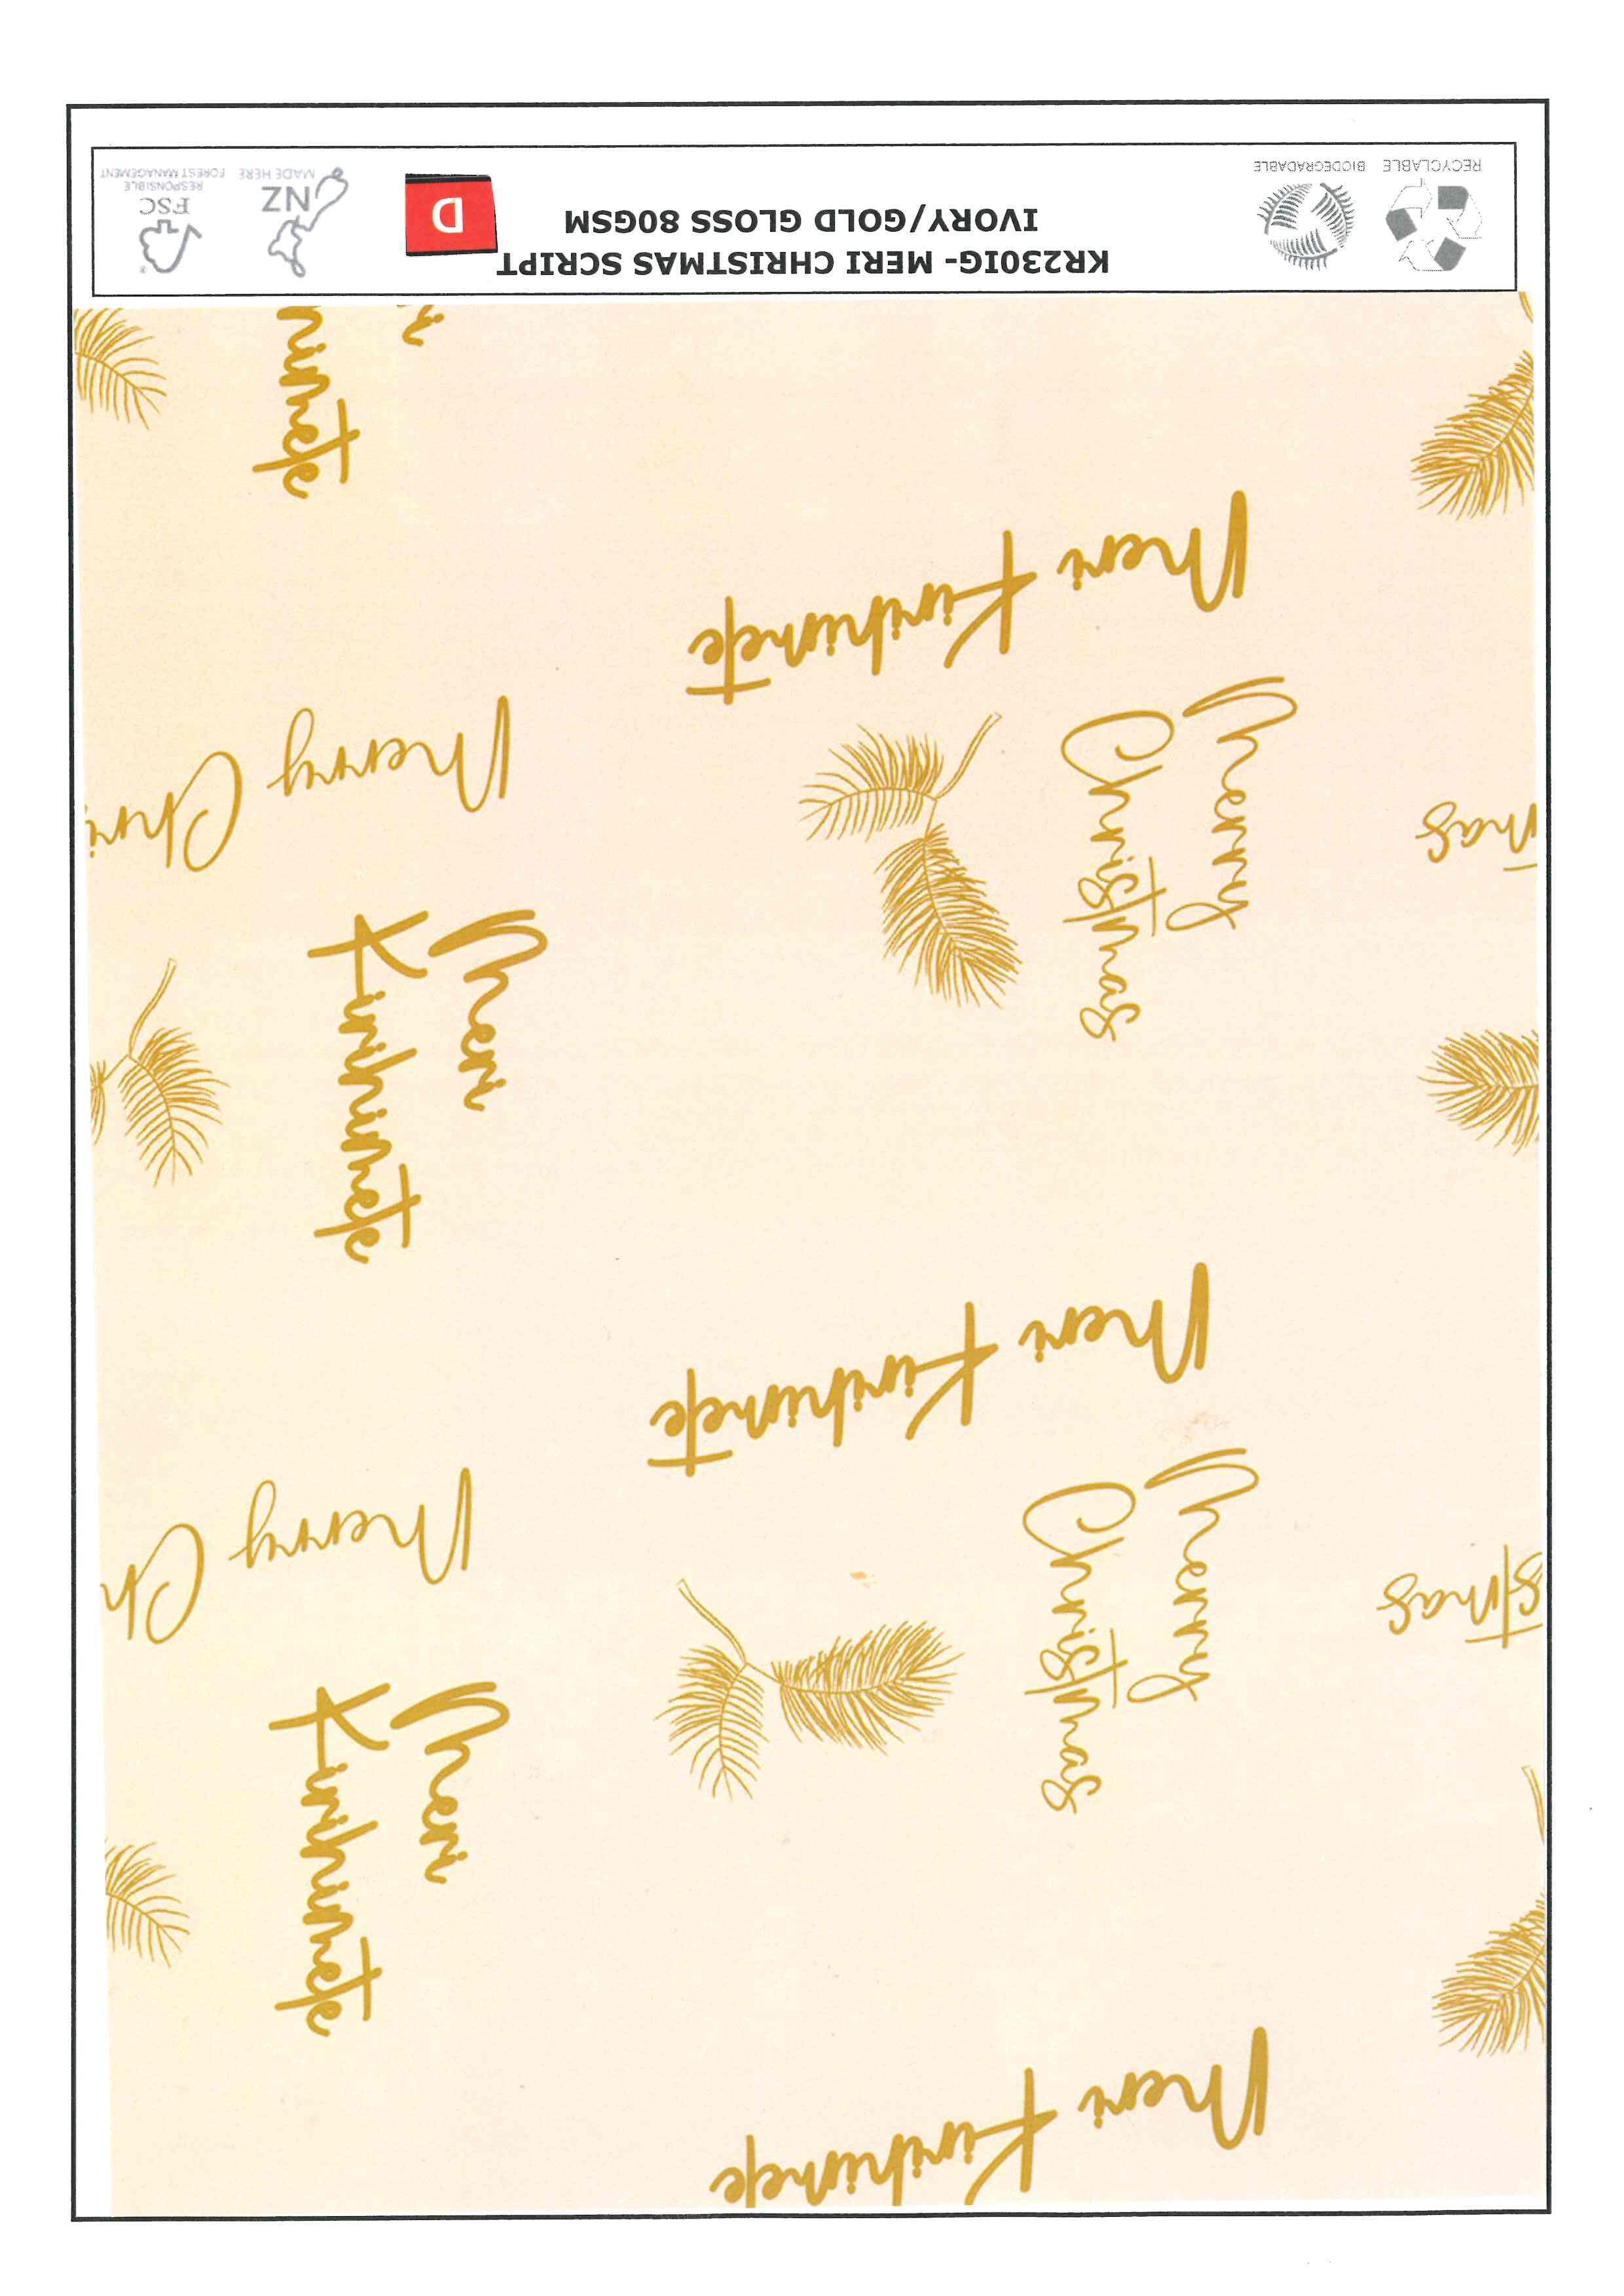 Meri Kirihimete
Meri
Kirihimete
Merry
Christmas
stmas
Merry Ch
Meri Kirihimete
Meri
Kirihimete
Merry
Christmas
mas
Merry Chri
Meri Kirihimete
himete
KR230IG- MERI CHRISTMAS SCRIPT
IVORY/GOLD GLOSS 80GSM
RECYCLABLE
BIODEGRADABLE
D
NZ
MADE HERE
FSC
®
RESPONSIBLE
FOREST MANAGEMENT